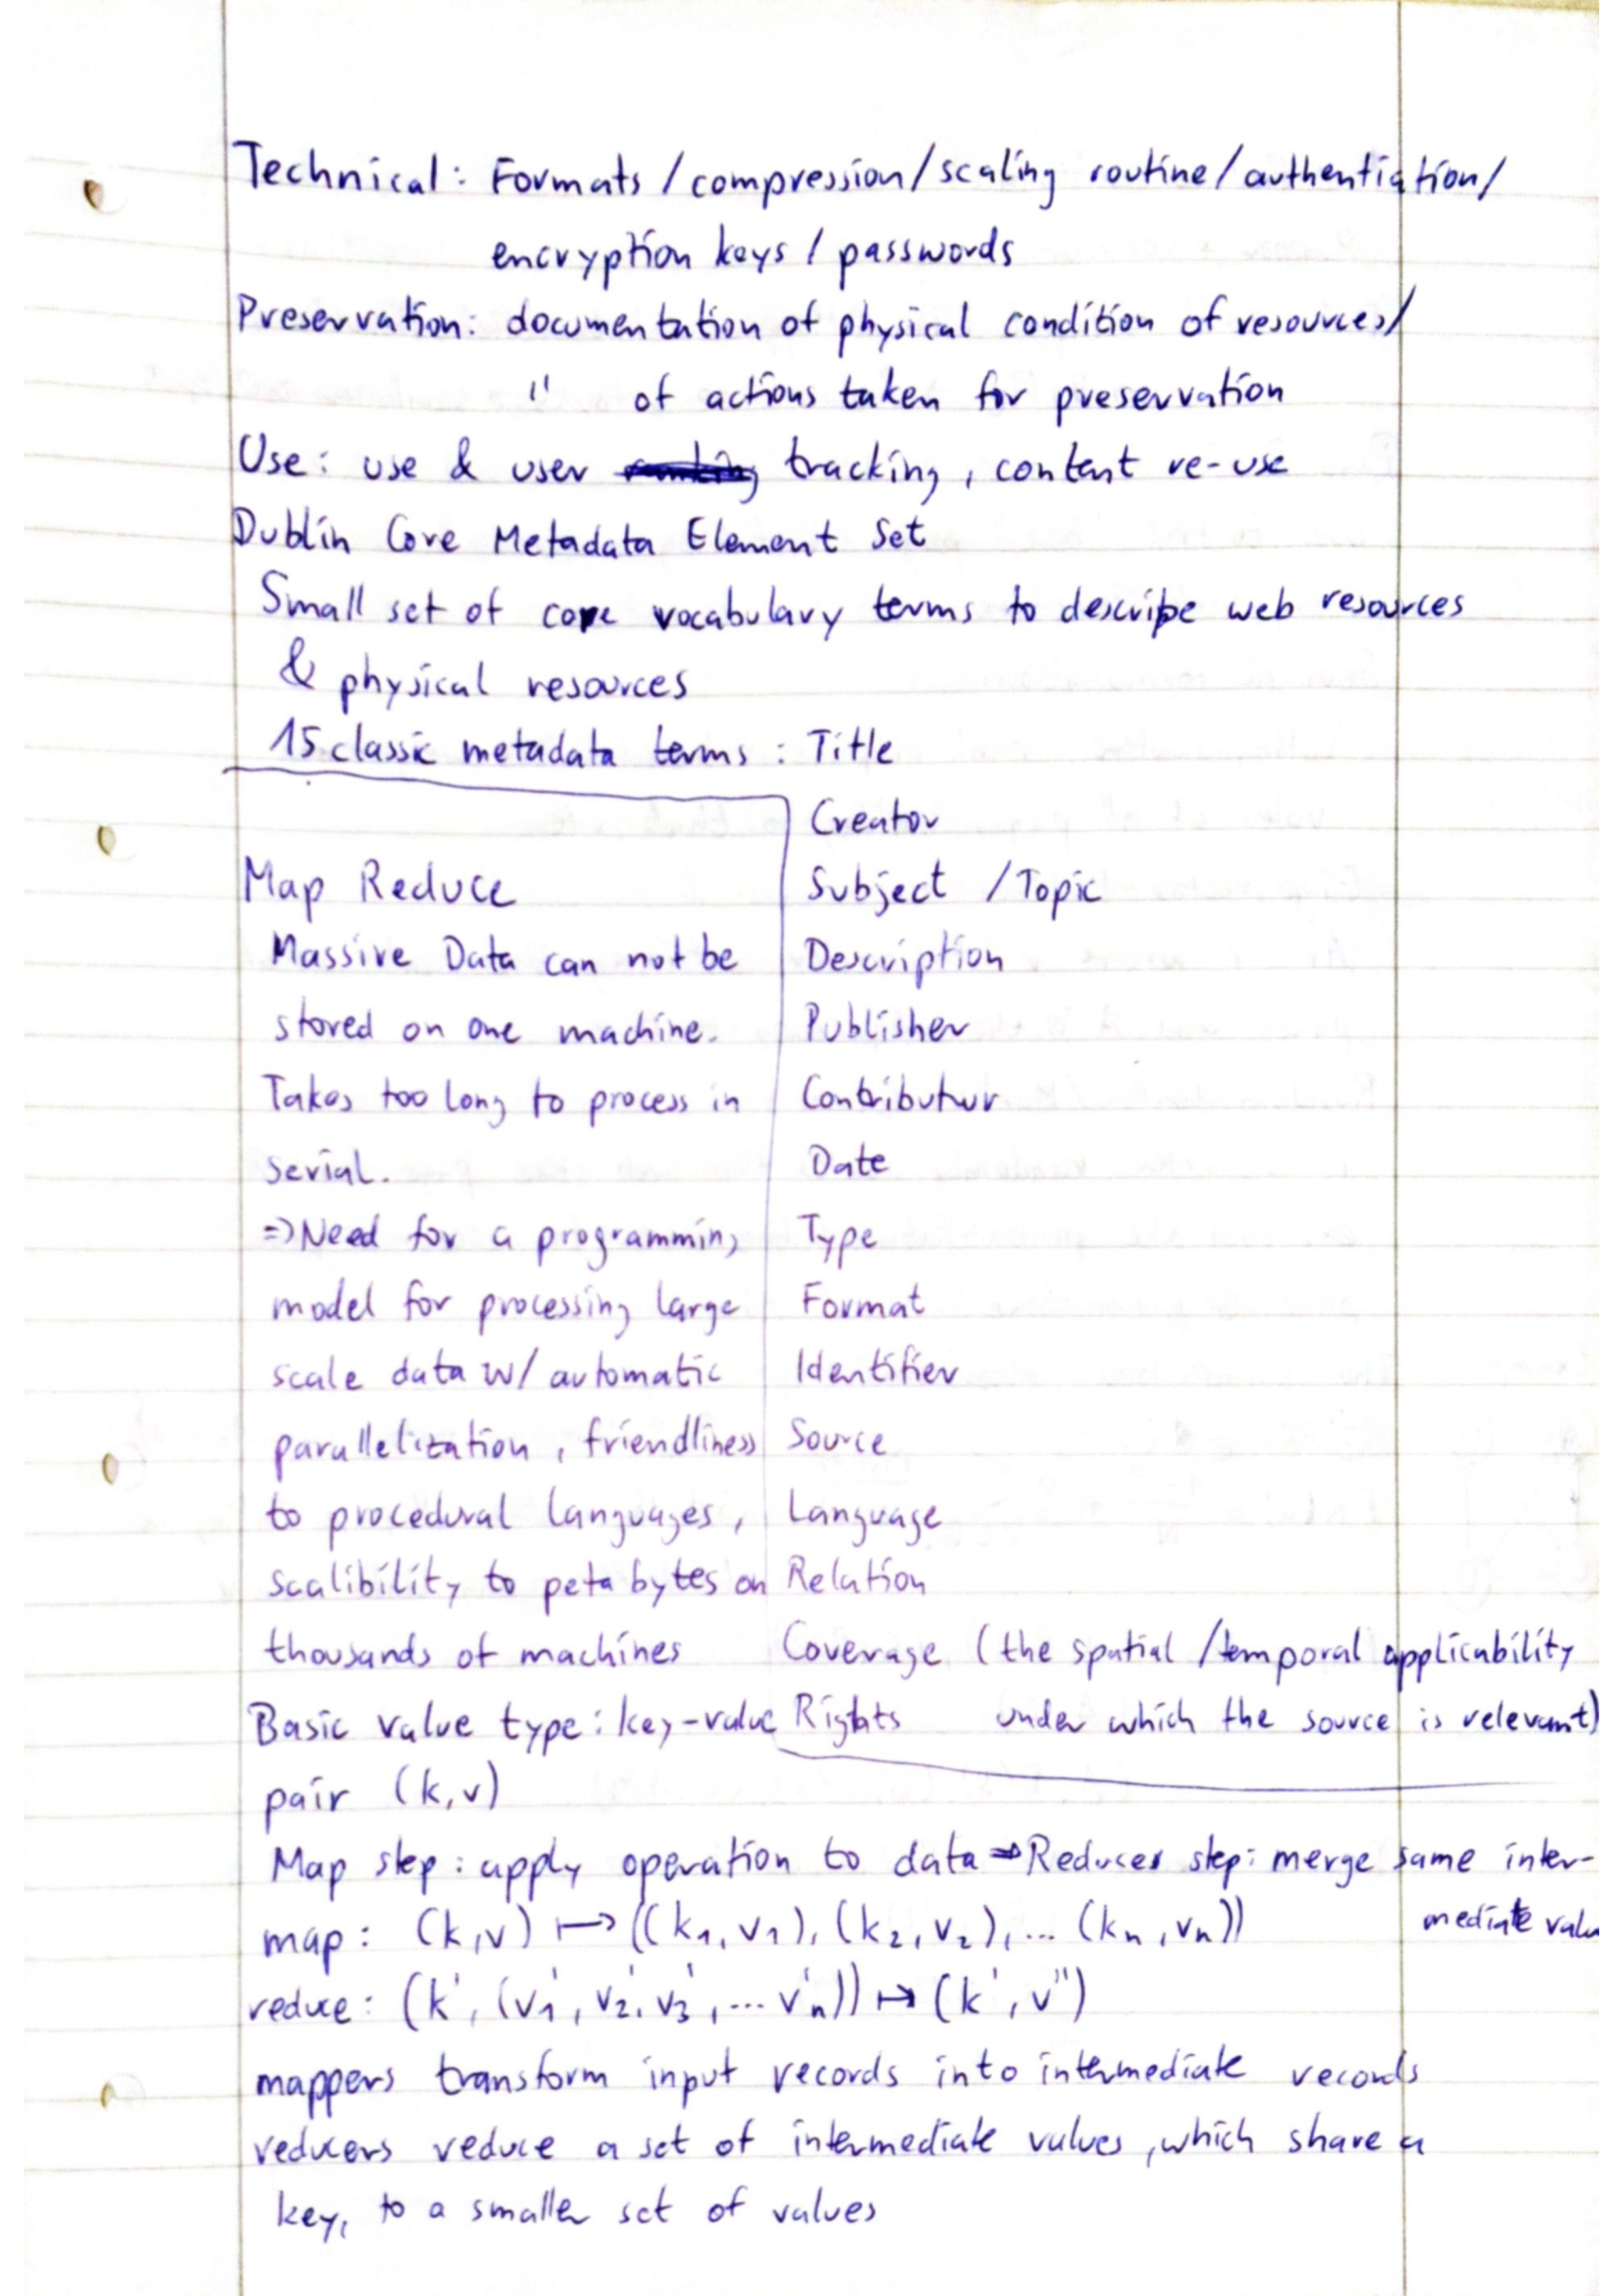 Technical: Formats / compression / scaling routine / authentiation /
encryption keys / passwords
Preservation: documentation of physical condition of resources /
" of actions taken for preservation
Use: use & user tracking, content re-use
Dublin Core Metadata Element Set
Small set of core vocabulary terms to describe web resources
& physical resources
15 classic metadata terms: Title
Creator
Subject / Topic
Description
Publisher
Contributur
Date
Type
Format
Identifier
Source
Language
Relation
Coverage (the spatial / temporal applicability
Rights under which the source is relevant)
Map Reduce
Massive Data can not be
stored on one machine.
Takes too long to process in
serial.
=> Need for a programming
model for processing large
scale data w/ automatic
parallelization, friendliness
to procedural languages,
scalibility to peta bytes on
thousands of machines
Basic value type: key-value
pair (k,v)
Map step: apply operation to data => Reduces step: merge same inter-
mediate valu
map: (k,v) ↦ ((k₁,v₁), (k₂,v₂), ... (kₙ,vₙ))
reduce: (k', (v₁', v₂', v₃', ... vₙ')) ↦ (k', v'')
mappers transform input records into intermediate records
reducers reduce a set of intermediate values, which share a
key, to a smaller set of values